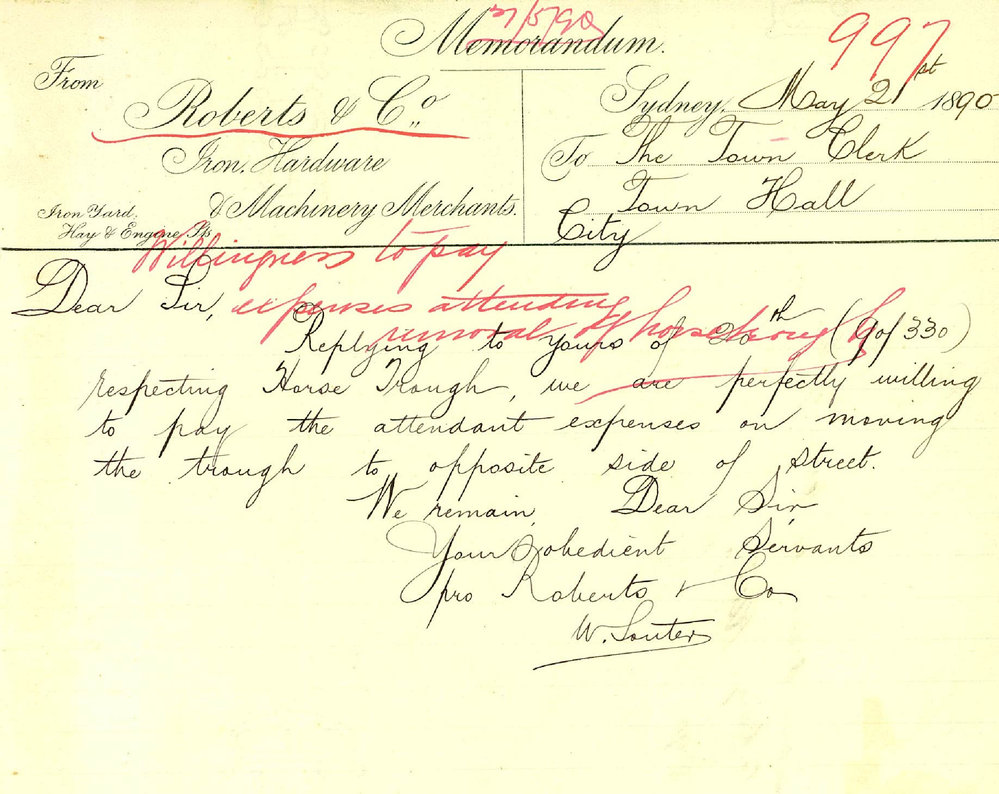 Memorandum.
997
From
Roberts & Co.,
Iron, Hardware
& Machinery Merchants.
Iron Yard.
Hay & Engine Sts
Sydney, May 21st 1890
To The Town Clerk
Town Hall
City
Willingness to pay
expenses attending
removal of horse trough
Dear Sir,
Replying to yours of 20th (90/330)
respecting Horse Trough, we are perfectly willing
to pay the attendant expenses on moving
the trough to opposite side of street.
We remain, Dear Sir
Your obedient Servants
pro Roberts & Co
W. Souter